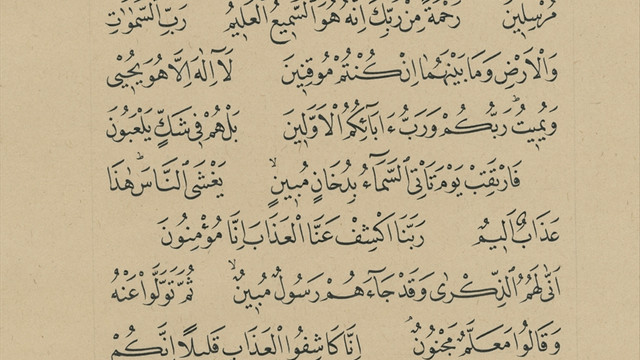 مُرْسِلِينَ رَحْمَةً مِنْ رَبِّكَ اِنَّهُ هُوَ السَّمِيعُ الْعَلِيمُ رَبِّ السَّمٰوَاتِ
وَالْاَرْضِ وَمَا بَيْنَهُمَا اِنْ كُنْتُمْ مُوقِنِينَ لَآ اِلٰهَ اِلَّا هُوَ يُحْيٖى
وَيُمِيتُ رَبُّكُمْ وَرَبُّ ءَابَآئِكُمُ الْاَوَّلِينَ بَلْ هُمْ فِى شَكٍّ يَلْعَبُونَ
فَارْتَقِبْ يَوْمَ تَاْتِى السَّمَآءُ بِدُخَانٍ مُبِينٍ يَغْشَى النَّاسَ هٰذَا
عَذَابٌ اَلِيمٌ رَبَّنَا اكْشِفْ عَنَّا الْعَذَابَ اِنَّا مُؤْمِنُونَ
اَنّٰى لَهُمُ الذِّكْرٰى وَقَدْ جَآءَهُمْ رَسُولٌ مُبِينٌ ثُمَّ تَوَلَّوْا عَنْهُ
وَقَالُوا مُعَلَّمٌ مَجْنُونٌ اِنَّا كَاشِفُوا الْعَذَابِ قَلِيلًا اِنَّكُمْ